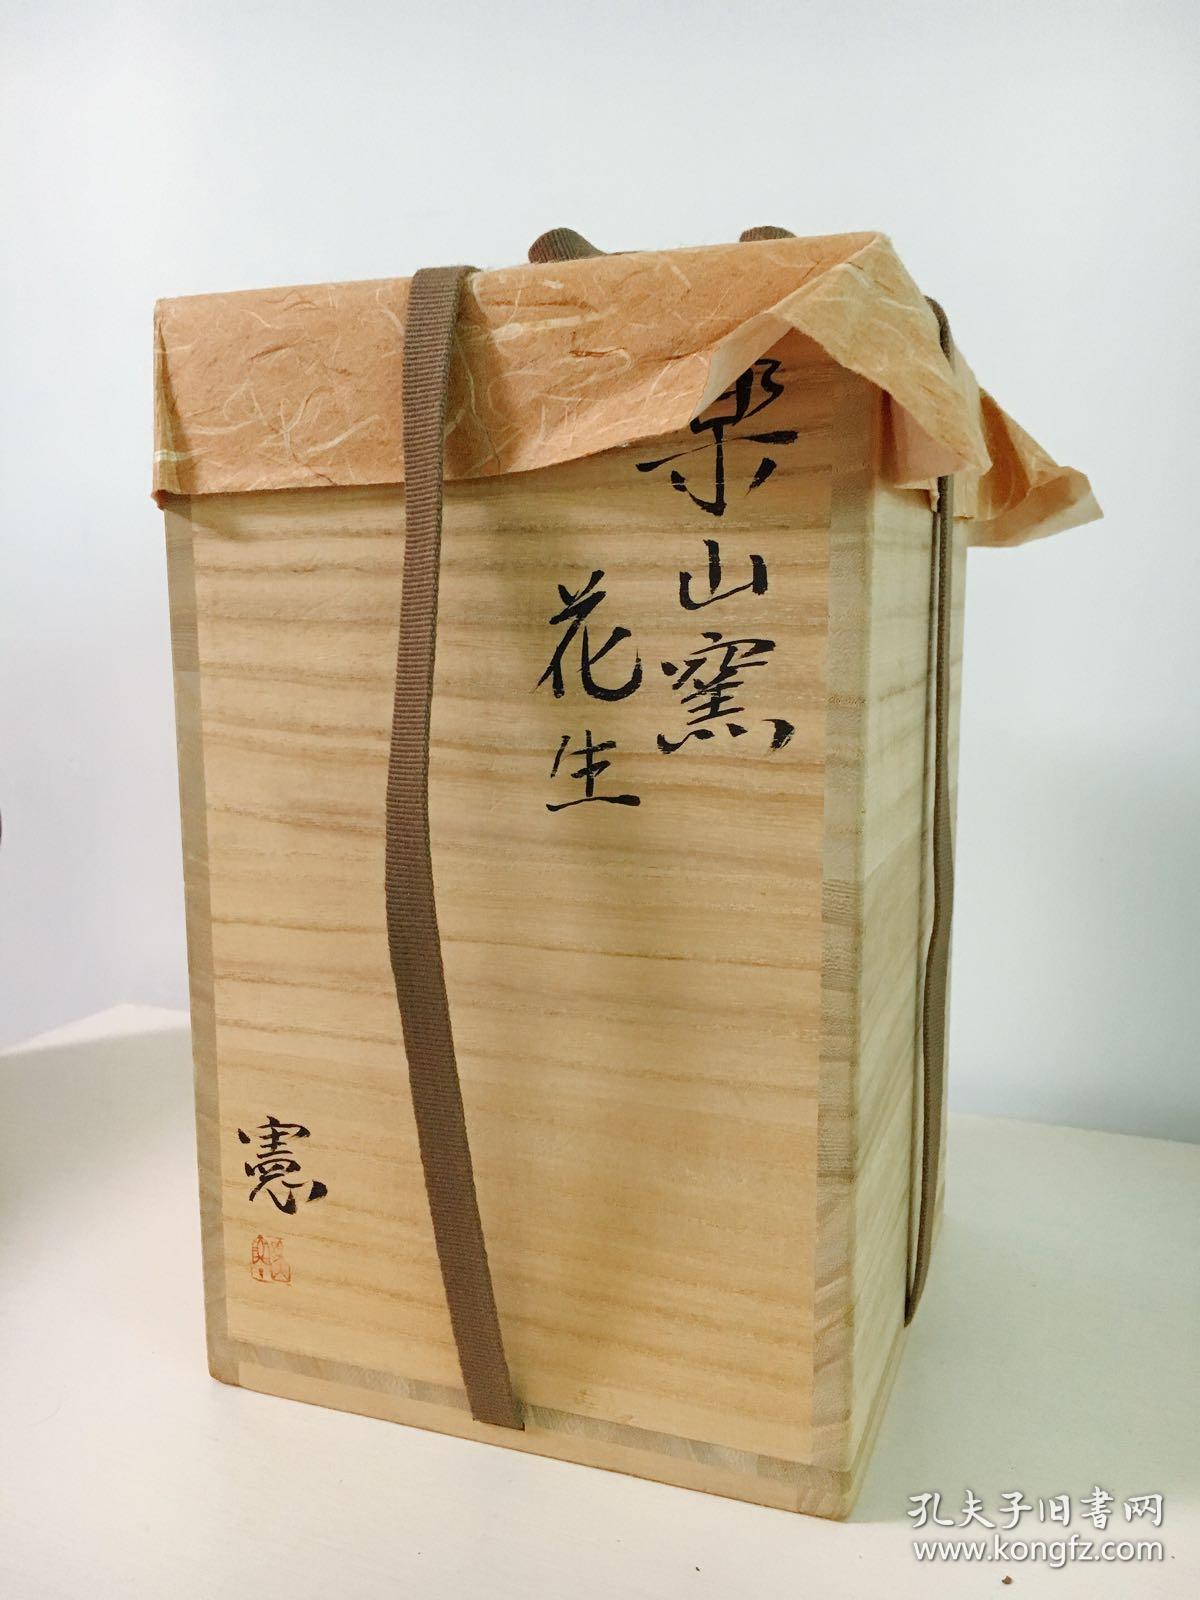 楽山窯
花生
憲
孔夫子旧書网
www.kongfz.com